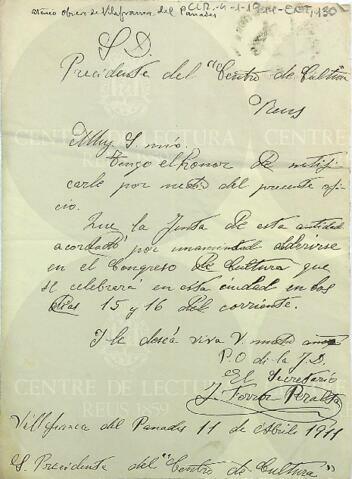 Ateneo Obrero de Vilafranca del Panadés
S. D.
Precidente del "Centro de Cultura
Reus
Muy S mio.
Tengo el honor De notifi
carle por medio del presente ofi
cio.
Que la Junta de esta entidad
acordado por unanimidad adherirse
en el Congreso De Cultura que
se celebrará en esta ciudad en los
dias 15 y 16 del corriente.
I le deseá viva V. muchos años
P.O de la J.D.
El Secretario
J. Ferrer Peralta
Villafranca del Panades 11 de Abril 1911
S. Precidente del "Centro de Cultura"
CENTRE DE LECTURA
REUS 1859